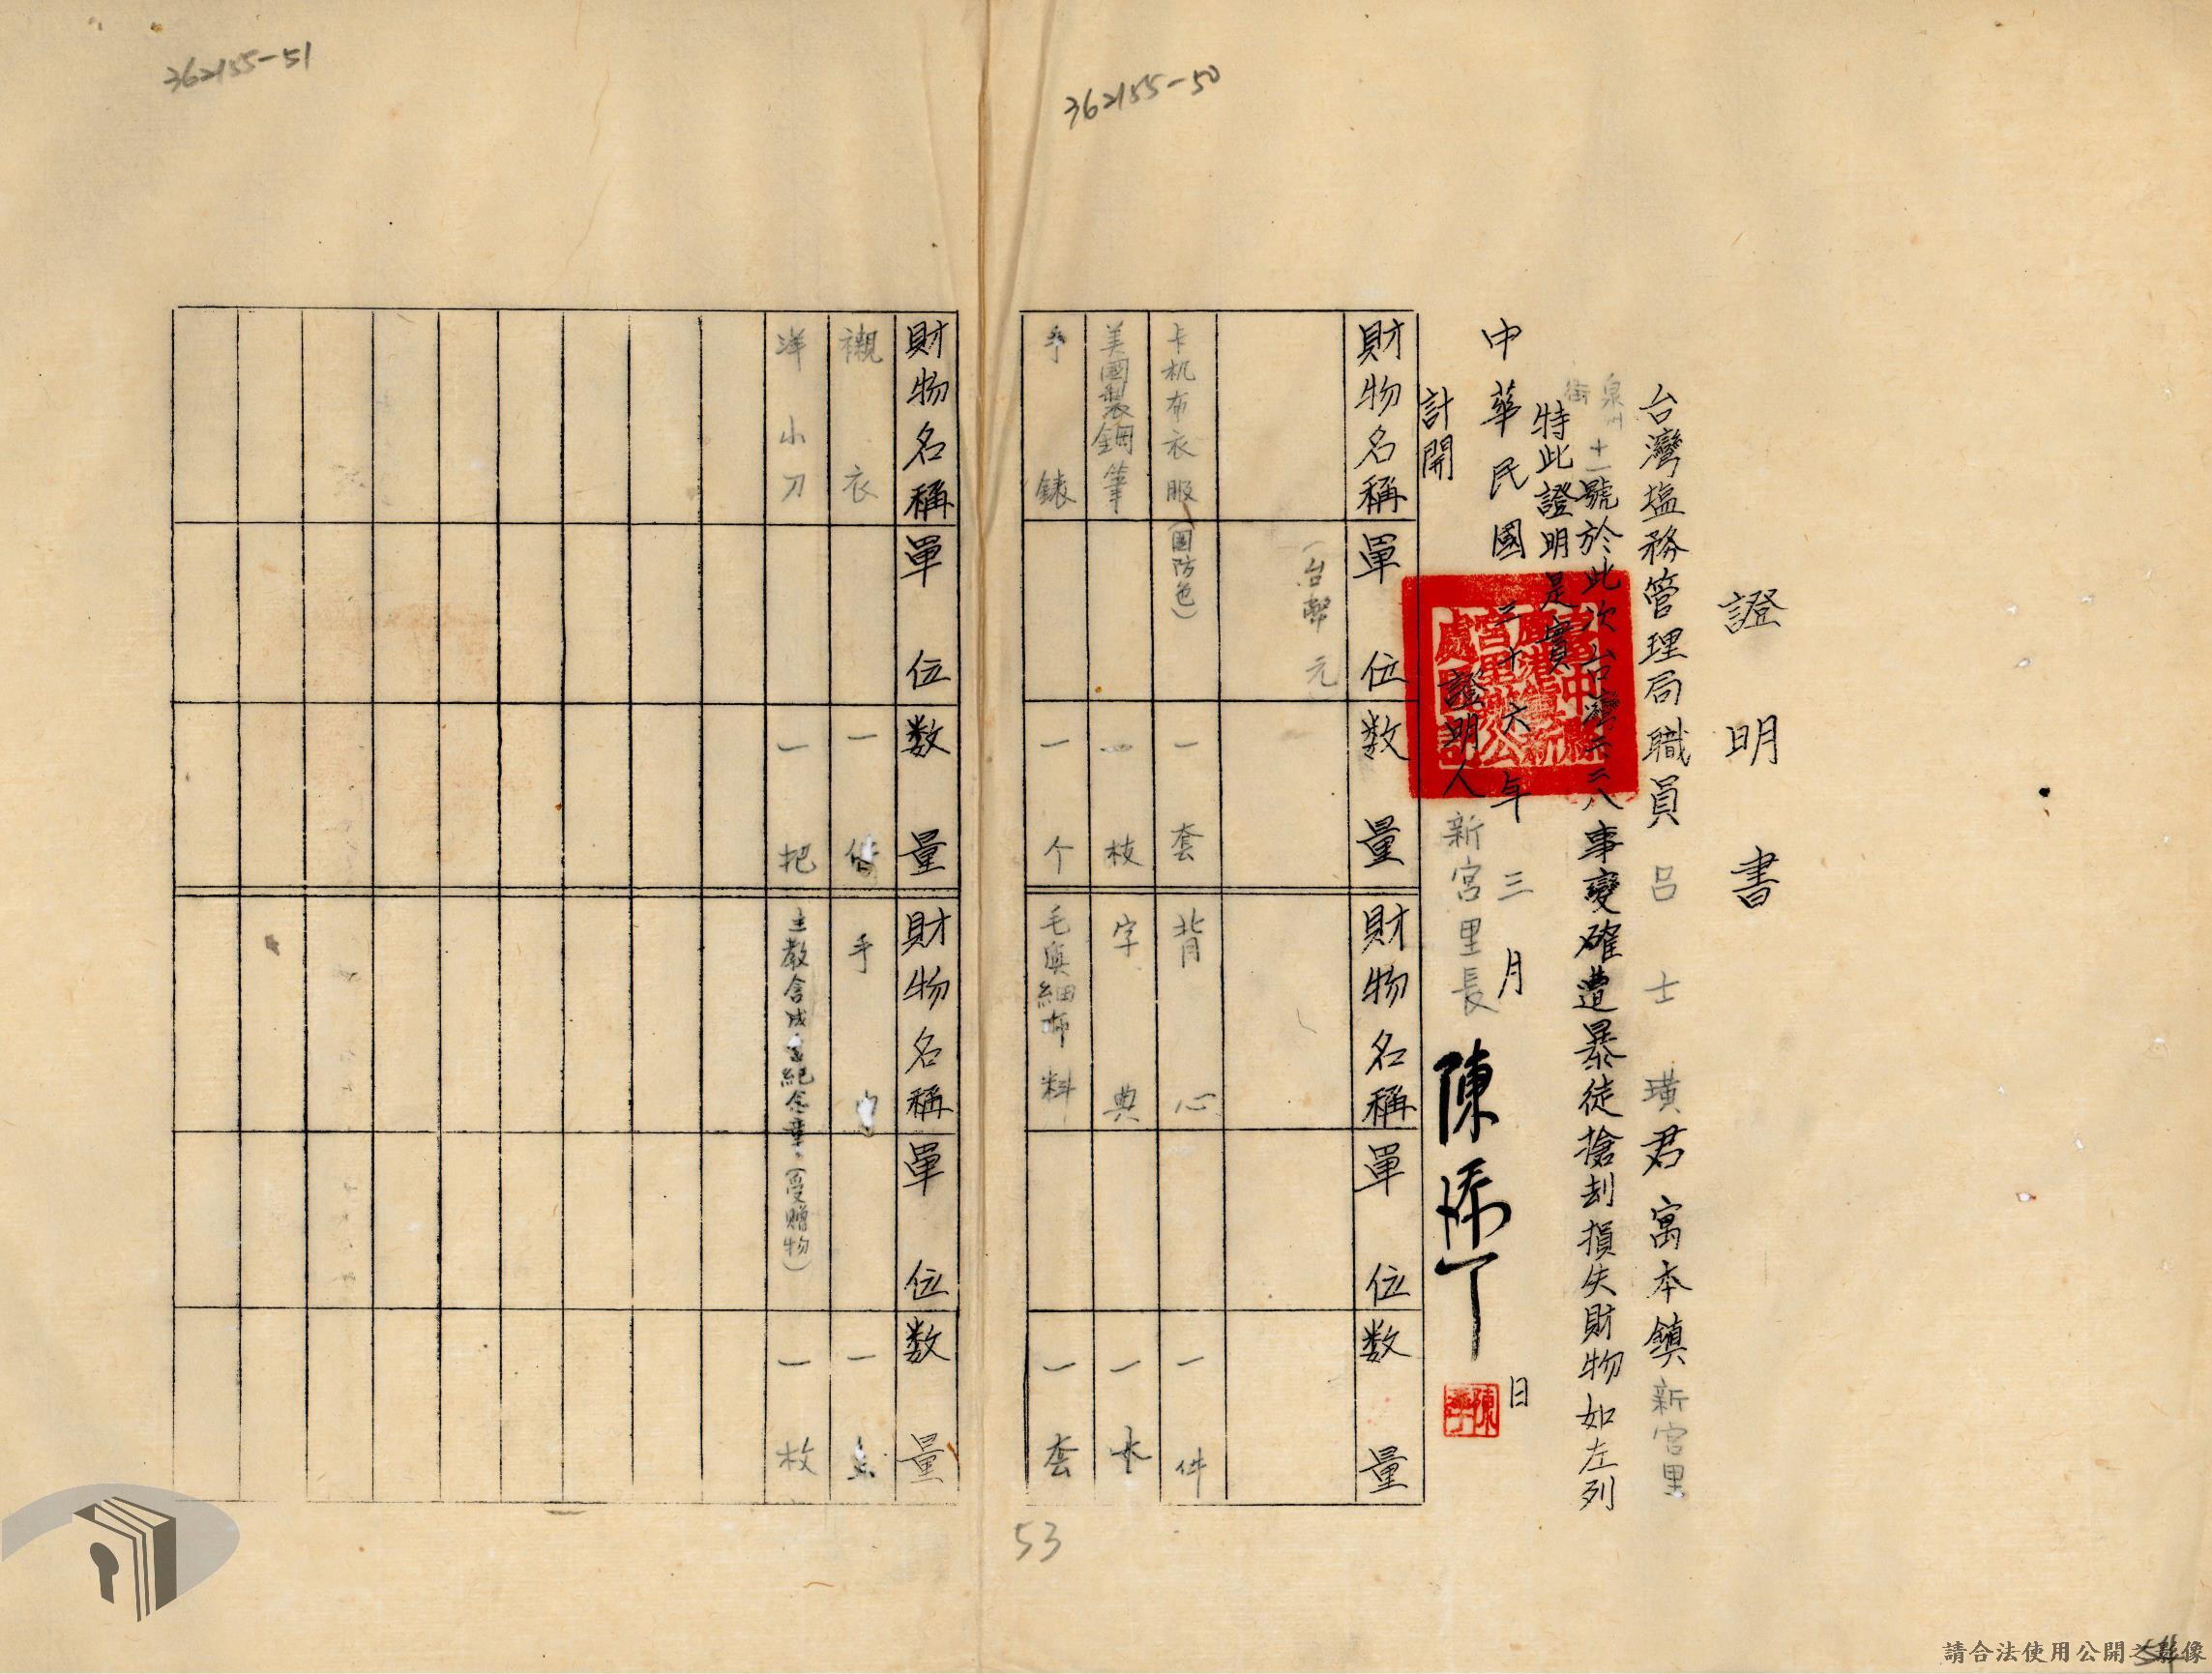 362155-50
證明書
台灣塩務管理局職員呂士璜君寓本鎮新宮里
泉州街十一號於此次台灣二二八事變確遭暴徒搶刦損失財物如左列
特此證明是實
中華民國三十六年三月 日
證明人新宮里長陳添丁
計開
財物名稱 單位 数量 財物名稱 單位 数量
(台幣元
卡机布衣服(國防色) 一套 背心 一件
美國製鋼筆 一枝 字典 一本
手錶 一个 毛 細布料 一套
53
362155-51
財物名稱 單位 数量 財物名稱 單位 数量
襯衣 一 手 一
洋小刀 一把 主教 紀念章(受贈物) 一枚
請合法使用公開之影像